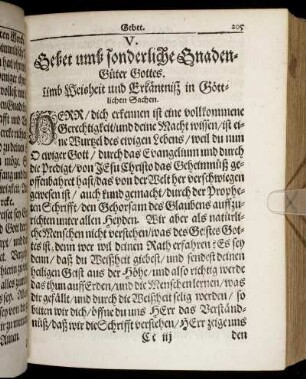 Gebet. 205
V.
Gebet umb sonderliche Gnaden-
Güter Gottes.
Umb Weisheit und Erkäntniß in Gött-
lichen Sachen.
HERR/ dich erkennen ist eine vollkommene
Gerechtigkeit/und deine Macht wissen/ist ei-
ne Wurtzel des ewigen Lebens/ weil du nun
O ewiger Gott/ durch das Evangelium und durch
die Predigt/ von JEsu Christo das Geheimnüß ge-
offenbahret hast/das von der Welt her verschwiegen
gewesen ist/ auch kund gemacht/ durch der Prophe-
ten Schrifft/ den Gehorsam des Glaubens auffzu-
richten unter allen Heyden. Wir aber als natürli-
che Menschen nicht verstehen/was des Geistes Got-
tes ist. denn wer wil deinen Rath erfahren? Es sey
denn/ daß du Weißheit giebest/ und sendest deinen
heiligen Geist aus der Höhe/ und also richtig werde
das thun auff Erden/ und die Menschen lernen/ was
dir gefällt/ und durch die Weißheit selig werden/ so
bitten wir dich/ öffne du uns HErr das Verständ-
nüß/ daß wir die Schrifft verstehen/ HErr zeige uns
Cc iij den